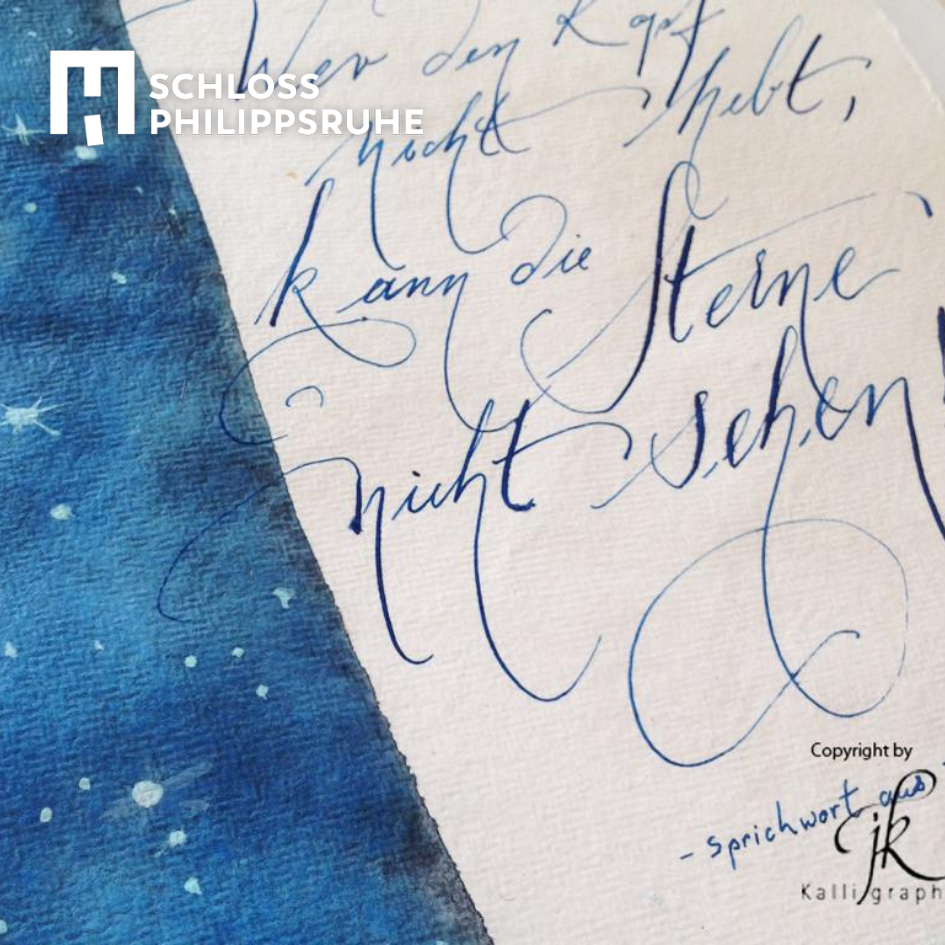 SCHLOSS
PHILIPPSRUHE
Wer den Kopf
nicht hebt,
kann die Sterne
nicht sehen!
Copyright by
- Sprichwort aus
jk
Kalligraph